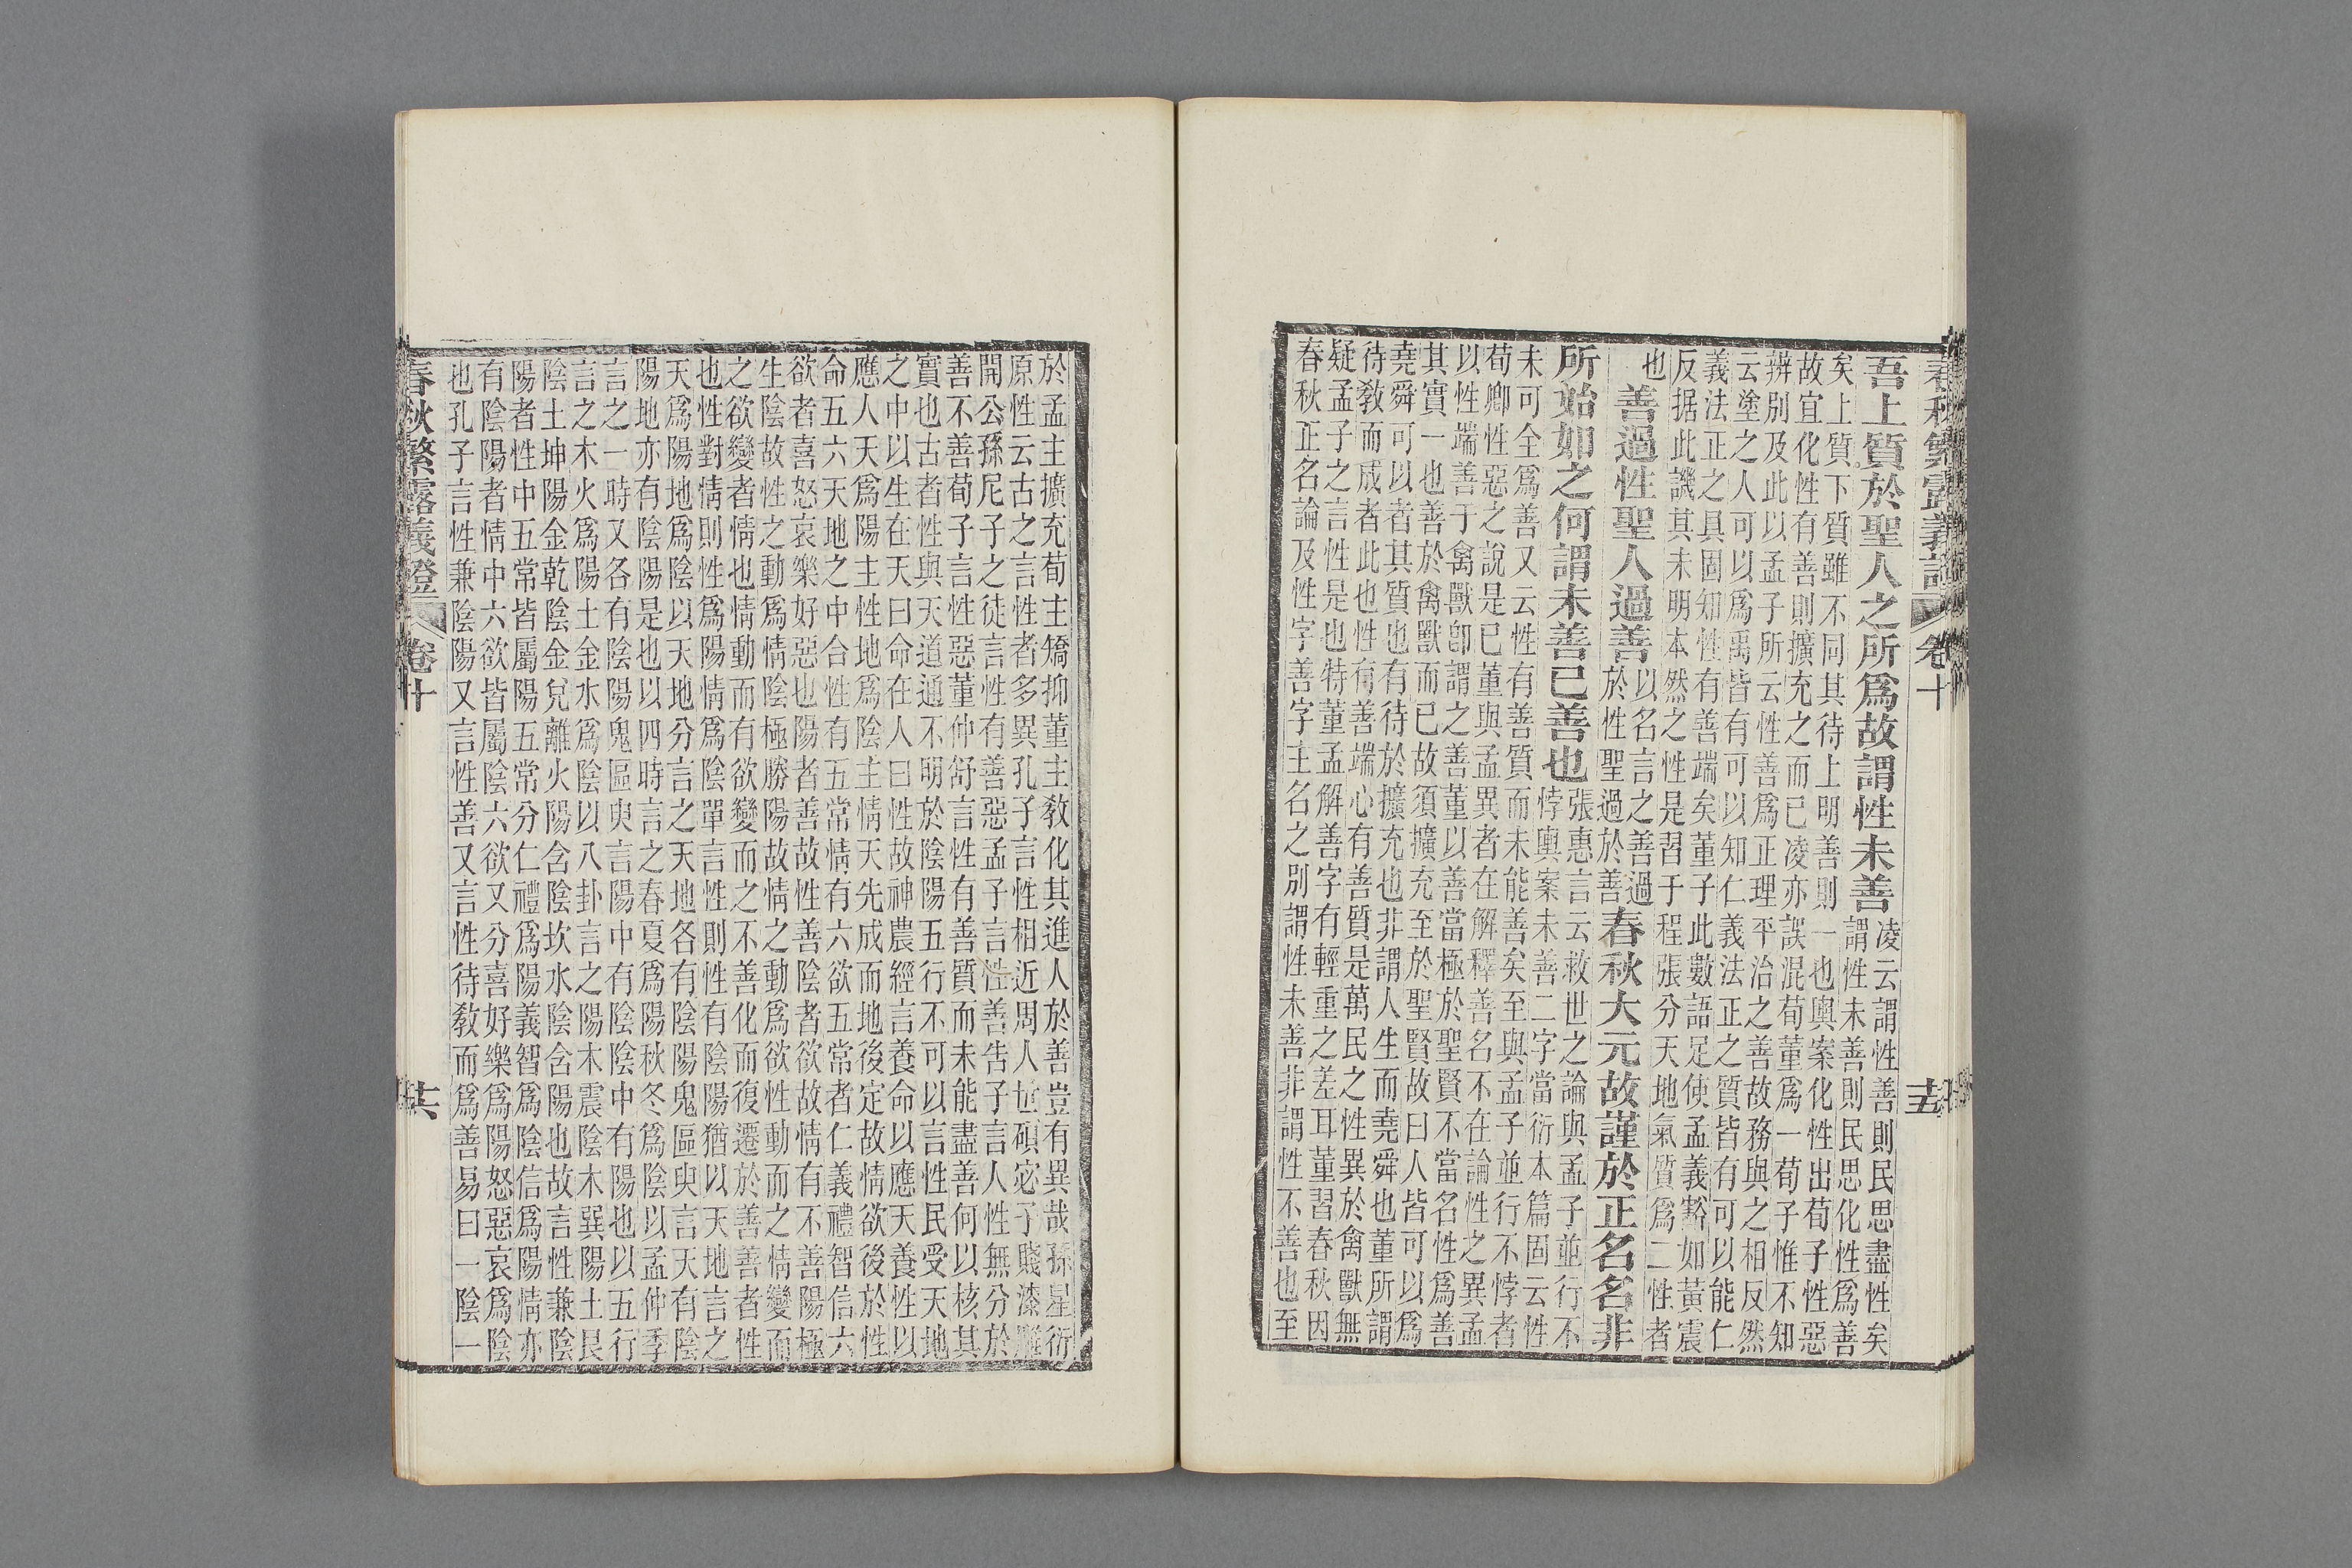 春秋繁露義證 卷十 十五
吾上質於聖人之所爲故謂性未善凌云謂性善則民思盡性矣
謂性未善則民思化性爲善
矣上質下質雖不同其待上明善則一也輿案化性出荀子性惡
故宜化性有善則擴充之而已凌亦誤混荀董爲一荀子惟不知
辨別及此以孟子所云性善爲正理平治之善故務與之相反然
云塗之人可以爲禹皆有可以知仁義法正之質皆有可以能仁
義法正之具固知性有善端矣董子此數語足使孟義豁如黃震
反据此譏其未明本然之性是習于程張分天地氣質爲二性者
也
善過性聖人過善以名言之善過
於性聖過於善
春秋大元故謹於正名名非
所始如之何謂未善已善也張惠言云救世之論與孟子並行不
悖輿案未善二字當衍本篇固云性
未可全爲善又云性有善質而未能善矣至與孟子並行不悖者
荀卿性惡之說是已董與孟異者在解釋善名不在論性之異孟
以性端善于禽獸卽謂之善董以善當極於聖賢不當名性爲善
其實一也善於禽獸而已故須擴充至於聖賢故曰人皆可以爲
堯舜可以者其質也有待於擴充也非謂人生而堯舜也董所謂
待敎而成者此也性有善端心有善質是萬民之性異於禽獸無
疑孟子之言性是也特董孟解善字有輕重之差耳董習春秋因
春秋正名論及性字善字主名之別謂性未善非謂性不善也至
於孟主擴充荀主矯抑董主敎化其進人於善豈有異哉孫星衍
原性云古之言性者多異孔子言性相近周人世碩宓子賤漆雕
開公孫尼子之徒言性有善惡孟子言性善告子言人性無分於
善不善荀子言性惡董仲舒言性有善質而未能盡善何以核其
實也古者性與天道通不明於陰陽五行不可以言性民受天地
之中以生在天曰命在人曰性故神農經言養命以應天養性以
應人天爲陽主性地爲陰主情天先成而地後定故情欲後於性
命五六天地之中合性有五常情有六欲五常者仁義禮智信六
欲者喜怒哀樂好惡也陽者善故性善陰者欲故情有不善陽極
生陰故性之動爲情陰極勝陽故情之動爲欲性動而之情變而
之欲變者情也情動而有欲變而之不善化而復遷於善善者性
也性對情則性爲陽情爲陰單言性則性有陰陽猶以天地言之
天爲陽地爲陰以天地分言之天地各有陰陽鬼區臾言天有陰
陽地亦有陰陽是也以四時言之春夏爲陽秋冬爲陰以孟仲季
言之一時又各有陰陽鬼區臾言陽中有陰陰中有陽也以五行
言之木火爲陽土金水爲陰以八卦言之陽木震陰木巽陽土艮
陰土坤陽金乾陰金兌離火陽含陰坎水陰含陽也故言性兼陰
陽者性中五常皆屬陽五常分仁禮爲陽義智爲陰信爲陽情亦
有陰陽者情中六欲皆屬陰六欲又分喜好樂爲陽怒惡哀爲陰
也孔子言性兼陰陽又言性善又言性待敎而爲善易曰一陰一
春秋繁露義證 卷十 十六